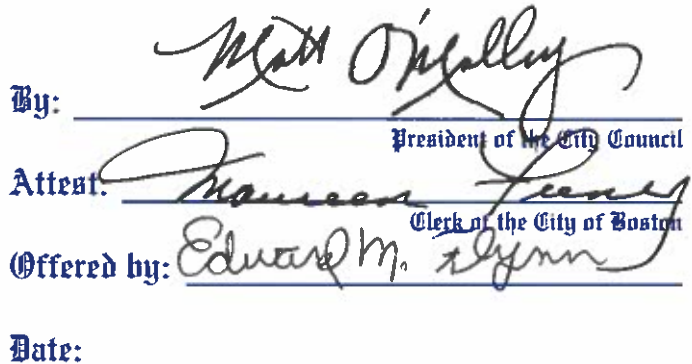 By: Matt O'Malley
President of the City Council
Attest: Maureen Feeney
Clerk of the City of Boston
Offered by: Edward M. Flynn
Date: